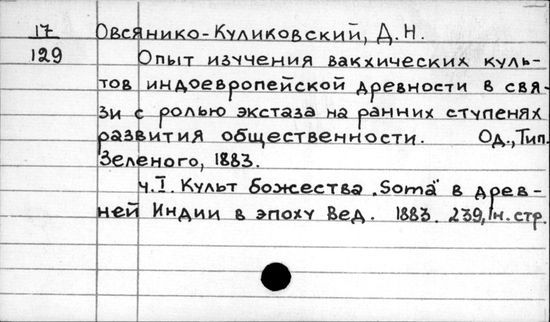 17 Овсянико-Куликовский, Д.Н.
129 Опыт изучения вакхических куль-
тов индоевропейской древности в свя-
зи с ролью экстаза на ранних ступенях
развития общественности. Од., Тип.
Зеленого, 1883.
Ч.I. Культ божества „Soma" в древ-
ней Индии в эпоху Вед. 1883. 239, 1н.стр.